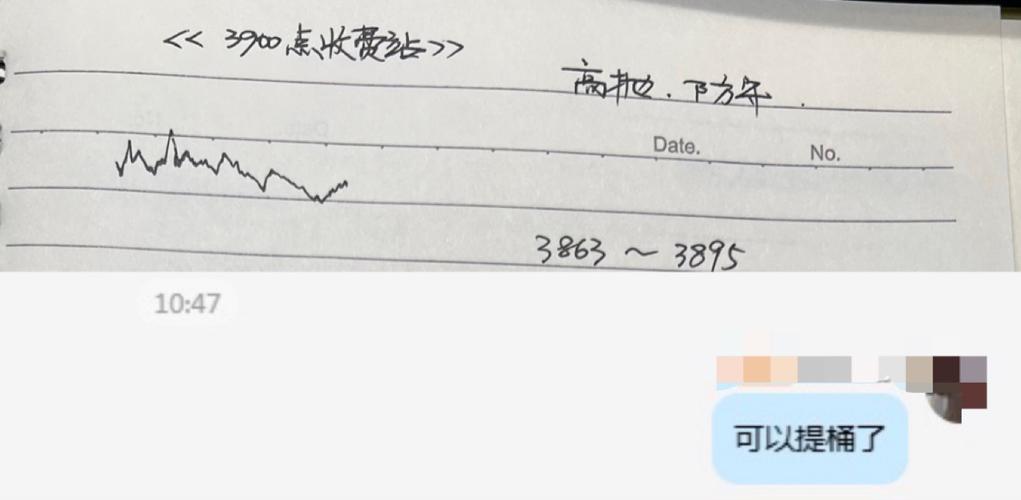 << 3900点收费站>>
高抛.下方守.
Date. No.
3863 ~ 3895
10:47
可以提桶了